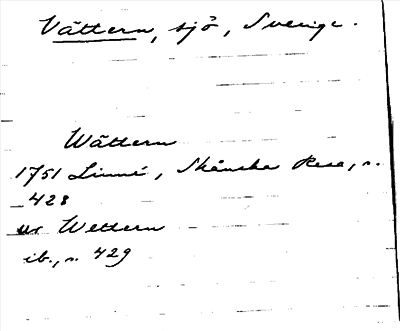 Vättern, sjö, Sverige.
Wättern
1751 Linné, Skånska Resa, s.
428
ur Wettern
ib., s. 429